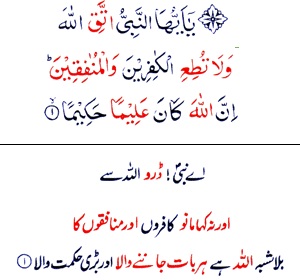 يٰۤاَيُّهَا النَّبِىُّ اتَّقِ اللّٰهَ
وَلَا تُطِعِ الْكٰفِرِيْنَ وَالْمُنٰفِقِيْنَ ؕ
اِنَّ اللّٰهَ كَانَ عَلِيْمًا حَكِيْمًا ۙ‏ ۱
اے نبیؐ ! ڈرو اللہ سے
اور نہ کہا مانو کافروں اور منافقوں کا
بلاشبہ اللہ ہے ہر بات جاننے والا اور بڑی حکمت والا ۱